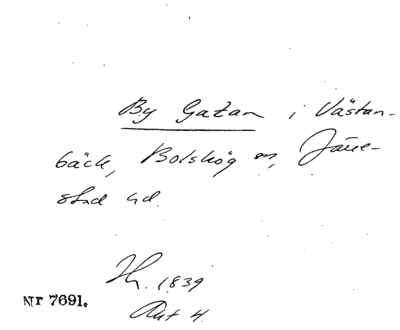 By Gatan i Västan-
bäck, Bolshög sn, Järre-
stad hd.
Th. 1839
Akt 4.
Nr 7691.